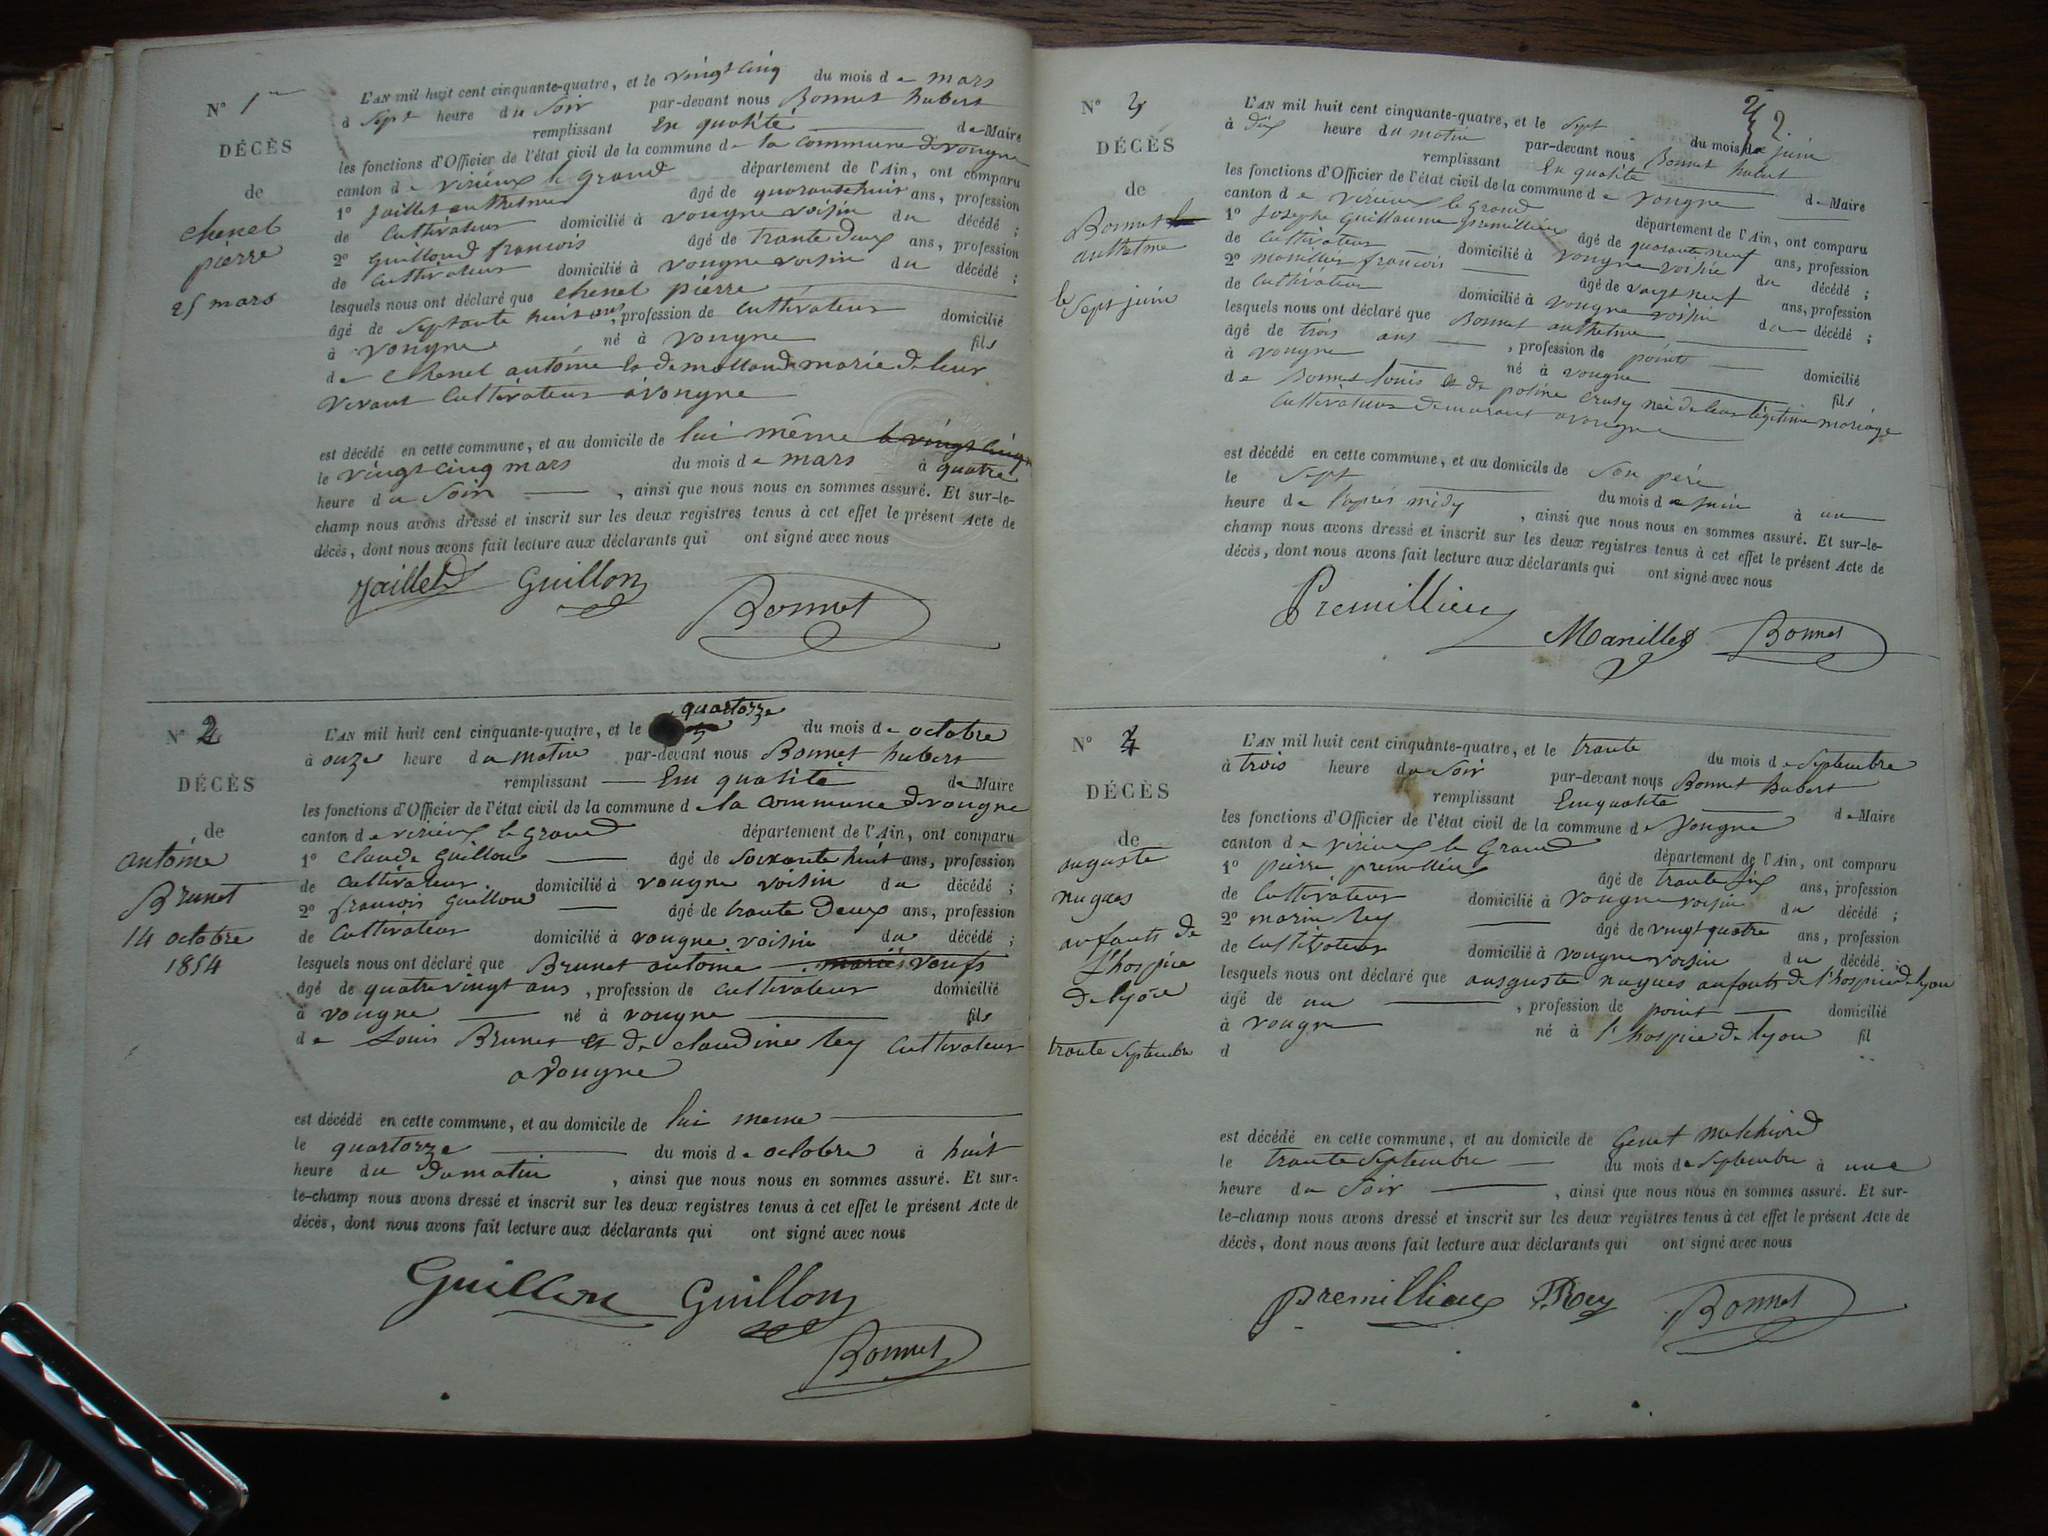 N° 1er
DÉCÈS
de
chenel
pierre
25 mars
L'AN mil huit cent cinquante-quatre, et le vingt cinq du mois de mars
à sept heure du soir par-devant nous Bonnet hubert
remplissant En qualité de Maire
les fonctions d'Officier de l'état civil de la commune de la commune de vongne
canton de virieux le grand département de l'Ain, ont comparu
1° Jaillet anthelme âgé de quarante huit ans, profession
de Cultivateur domicilié à vongne voisin du décédé ;
2° Guilloud francois âgé de trante deux ans, profession
de Cultivateur domicilié à vongne voisin du décédé ;
lesquels nous ont déclaré que chenel pierre
âgé de septante huit ans, profession de Cultivateur domicilié
à vongne né à vongne fils
de chenel antoine et de molland marie de leur
vivant Cultivateur à vongne
est décédé en cette commune, et au domicile de lui même le vingt cinq
le vingt cinq mars du mois de mars à quatre
heure du Soir , ainsi que nous nous en sommes assuré. Et sur-le-
champ nous avons dressé et inscrit sur les deux registres tenus à cet effet le présent Acte de
décès, dont nous avons fait lecture aux déclarants qui ont signé avec nous
Jaillet Guillon
Bonnet
N° 2
DÉCÈS
de
antoine
Brunet
14 octobre
1854
quartorze
L'AN mil huit cent cinquante-quatre, et le du mois de octobre
à onze heure du matin par-devant nous Bonnet hubert
remplissant Em qualité de Maire
les fonctions d'Officier de l'état civil de la commune de la commune de vongne
canton de virieux le Grand département de l'Ain, ont comparu
1° Claude Guillon âgé de soixante huit ans, profession
de Cultivateur domicilié à vongne voisin du décédé ;
2° francois Guillon âgé de trante deux ans, profession
de Cultivateur domicilié à vongne voisin du décédé ;
lesquels nous ont déclaré que Brunet antoine mariés veufs
âgé de quatre vingt ans, profession de Cultivateur domicilié
à vongne né à vongne fils
de Louis Brunet et de claudine Rey Cultivateur
a vongne
est décédé en cette commune, et au domicile de lui meme
le quartorze du mois de octobre à huit
heure du du matin , ainsi que nous nous en sommes assuré. Et sur-
le-champ nous avons dressé et inscrit sur les deux registres tenus à cet effet le présent Acte de
décès, dont nous avons fait lecture aux déclarants qui ont signé avec nous
Guillon Guillon
Bonnet
2
N° 3
DÉCÈS
de
Bonnet
anthelme
le
Sept juin
L'AN mil huit cent cinquante-quatre, et le sept du mois de juin
à dix heure du matin par-devant nous Bonnet hubert
remplissant En qualité de Maire
les fonctions d'Officier de l'état civil de la commune de vongne
canton de virieux le grand département de l'Ain, ont comparu
1° Josephe Guillaume premillieu âgé de quarante neuf ans, profession
de Cultivateur domicilié à vongne voisin du décédé ;
2° manillier francois âgé de vaigt neuf ans, profession
de Cultivateur domicilié à vongne voisin du décédé ;
lesquels nous ont déclaré que Bonnet anthelme
âgé de trois ans , profession de point domicilié
à vongne né à vongne fils
de Bonnet louis et de poline Crusy née de leur légitime mariage
Cultivateur demeurant a vongne
est décédé en cette commune, et au domicile de son père
le sept du mois de juin à un
heure de l'après midy , ainsi que nous nous en sommes assuré. Et sur-le-
champ nous avons dressé et inscrit sur les deux registres tenus à cet effet le présent Acte de
décès, dont nous avons fait lecture aux déclarants qui ont signé avec nous
Premillieu
Manillier Bonnet
N° 4
DÉCÈS
de
auguste
nugues
anfants de
l'hospice
de lyon
trante septembre
L'AN mil huit cent cinquante-quatre, et le trante du mois de septembre
à trois heure du soir par-devant nous Bonnet hubert
remplissant Em qualité de Maire
les fonctions d'Officier de l'état civil de la commune de vongne
canton de virieux le Grand département de l'Ain, ont comparu
1° pierre premillieu âgé de trante six ans, profession
de Cultivateur domicilié à vongne voisin du décédé ;
2° marin Rey âgé de vingt quatre ans, profession
de Cultivateur domicilié à vongne voisin du décédé ;
lesquels nous ont déclaré que ausguste nugues anfants de l'hospice de lyon
âgé de un , profession de point domicilié
à vongne né à l'hospice de lyon fil
d
est décédé en cette commune, et au domicile de Genet melchiord
le trante septembre du mois de septembre à une
heure du soir , ainsi que nous nous en sommes assuré. Et sur-
le-champ nous avons dressé et inscrit sur les deux registres tenus à cet effet le présent Acte de
décès, dont nous avons fait lecture aux déclarants qui ont signé avec nous
premillieux Rey Bonnet